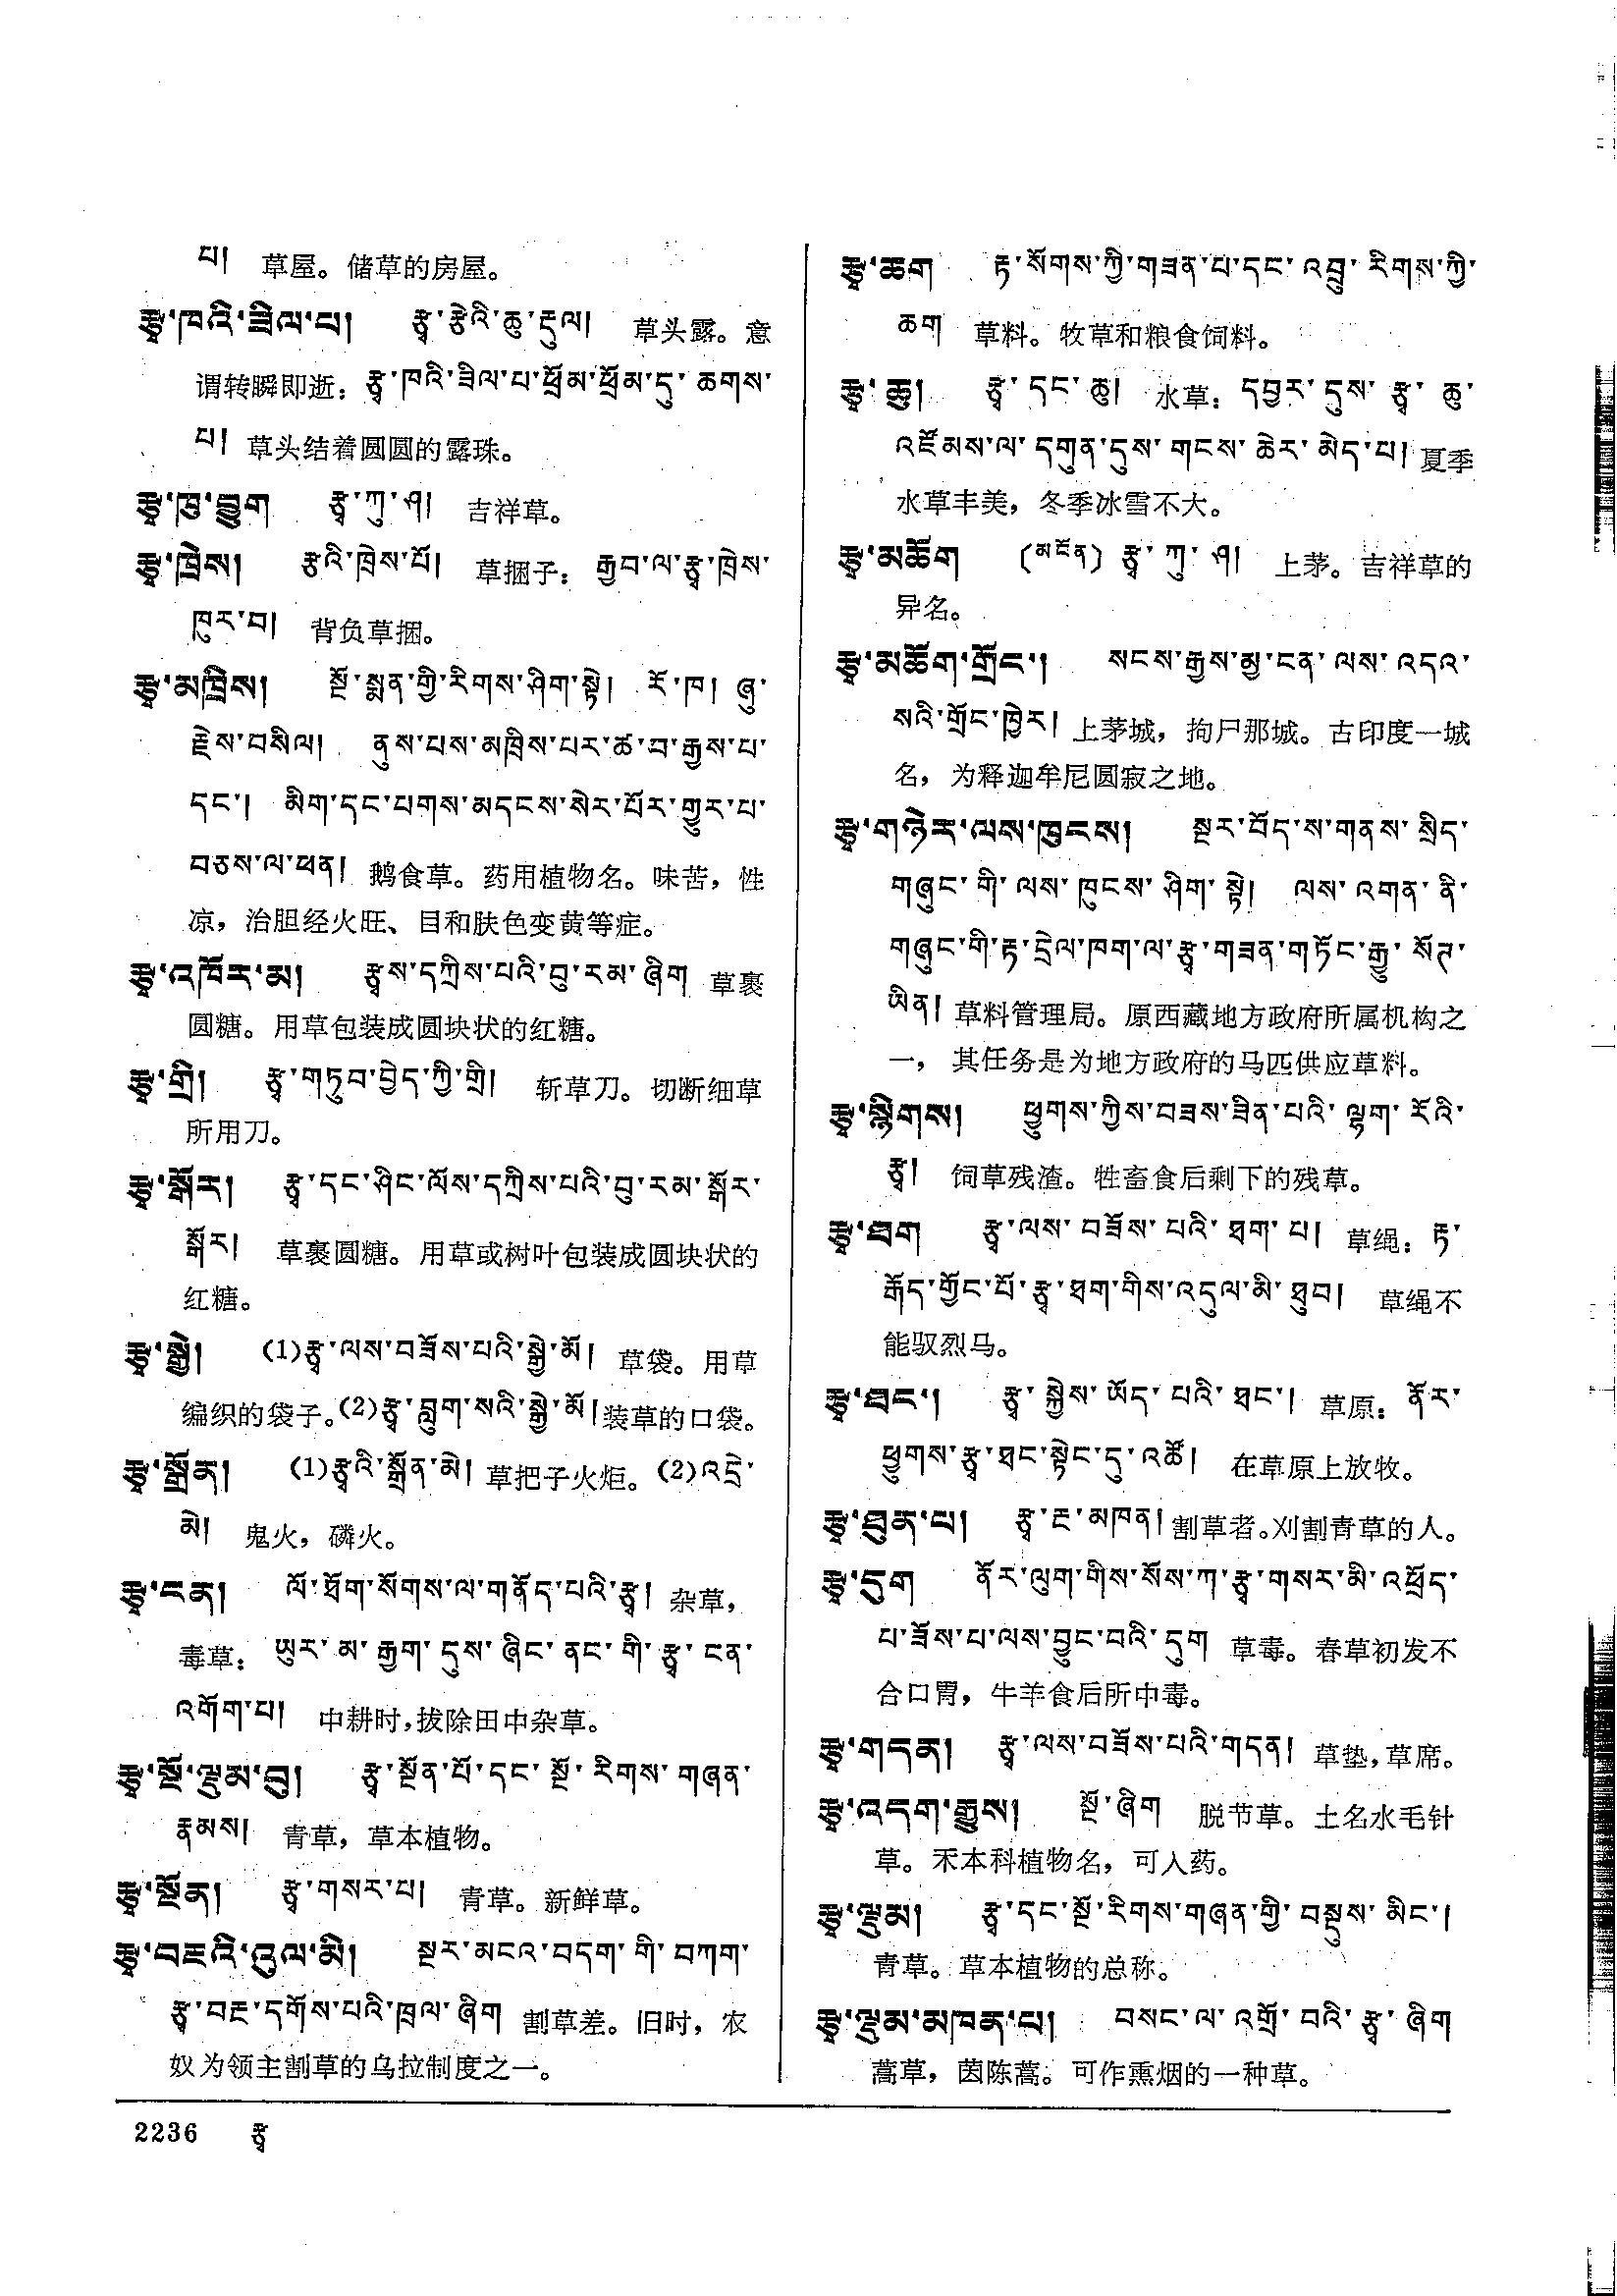 པ། 草屋。储草的房屋。
རྩྭ་ཁའི་ཟིལ་པ། རྩྭ་རྩེའི་ཆུ་རྡུལ། 草头露。意
谓转瞬即逝：རྩྭ་ཁའི་ཟིལ་པ་ཕྲོམ་ཕྲོམ་དུ་ཆགས་
པ། 草头结着圆圆的露珠。
རྩྭ་ཁུ་བྱུག རྩྭ་ཀུ་ཤ། 吉祥草。
རྩྭ་ཁྲེས། རྩྭའི་ཁྲེས་པོ། 草捆子：རྒྱབ་ལ་རྩྭ་ཁྲེས་
ཁུར་བ། 背负草捆。
རྩྭ་མཁྲིས། སྔོ་སྨན་གྱི་རིགས་ཤིག་སྟེ། རོ་ཁ། ཞུ་
རྗེས་བསིལ། ནུས་པས་མཁྲིས་པར་ཚ་བ་རྒྱས་པ་
དང་། མིག་དང་པགས་མདངས་སེར་པོར་གྱུར་པ་
བཅས་ལ་ཕན། 鹅食草。药用植物名。味苦，性
凉，治胆经火旺、目和肤色变黄等症。
རྩྭ་འཁོར་མ། རྩྭས་དཀྲིས་པའི་བུ་རམ་ཞིག 草裹
圆糖。用草包装成圆块状的红糖。
རྩྭ་གྲི། རྩྭ་གཏུབ་བྱེད་ཀྱི་གྲི། 斩草刀。切断细草
所用刀。
རྩྭ་སྒོར། རྩྭ་དང་ཤིང་ལོས་དཀྲིས་པའི་བུ་རམ་སྒོར་
སྒོར། 草裹圆糖。用草或树叶包装成圆块状的
红糖。
རྩྭ་སྒྱེ། (1)རྩྭ་ལས་བཟོས་པའི་སྒྱེ་མོ། 草袋。用草
编织的袋子。(2)རྩྭ་བླུག་སའི་སྒྱེ་མོ།装草的口袋。
རྩྭ་སྒྲོན། (1)རྩྭའི་སྒྲོན་མེ། 草把子火炬。(2)འདྲེ་
མེ། 鬼火，磷火。
རྩྭ་ངན། ལོ་ཐོག་སོགས་ལ་གནོད་པའི་རྩྭ། 杂草，
毒草：ཡུར་མ་རྒྱག་དུས་ཞིང་ནང་གི་རྩྭ་ངན་
འགོག་པ། 中耕时，拔除田中杂草。
རྩྭ་སྔོ་ལྡུམ་བུ། རྩྭ་སྔོན་པོ་དང་སྔོ་རིགས་གཞན་
རྣམས། 青草，草本植物。
རྩྭ་སྔོན། རྩྭ་གསར་པ། 青草。新鲜草。
རྩྭ་བརྔའི་འུལ་མི། སྔར་མངའ་བདག་གི་བཀག་
རྩྭ་བརྔ་དགོས་པའི་ཁྲལ་ཞིག 割草差。旧时，农
奴为领主割草的乌拉制度之一。
རྩྭ་ཆག རྟ་སོགས་ཀྱི་གཟན་པ་དང་འབྲུ་རིགས་ཀྱི་
ཆག 草料。牧草和粮食饲料。
རྩྭ་ཆུ། རྩྭ་དང་ཆུ། 水草：དབྱར་དུས་རྩྭ་ཆུ་
འཛོམས་ལ་དགུན་དུས་གངས་ཆེར་མེད་པ། 夏季
水草丰美，冬季冰雪不大。
རྩྭ་མཆོག (མངོན) རྩྭ་ཀུ་ཤ། 上茅。吉祥草的
异名。
རྩྭ་མཆོག་གྲོང་། སངས་རྒྱས་མྱ་ངན་ལས་འདའ་
སའི་གྲོང་ཁྱེར། 上茅城，拘尸那城。古印度一城
名，为释迦牟尼圆寂之地。
རྩྭ་གཉེར་ལས་ཁུངས། སྔར་བོད་ས་གནས་སྲིད་
གཞུང་གི་ལས་ཁུངས་ཤིག་སྟེ། ལས་འགན་ནི་
གཞུང་གི་རྟ་དྲེལ་ཁག་ལ་རྩྭ་གཟན་གཏོང་རྒྱུ་སོཊ་
ཡིན། 草料管理局。原西藏地方政府所属机构之
一，其任务是为地方政府的马匹供应草料。
རྩྭ་སྙིགས། ཕྱུགས་ཀྱིས་བཟས་ཟིན་པའི་ལྷག་རོའི་
རྩྭ། 饲草残渣。牲畜食后剩下的残草。
རྩྭ་ཐག རྩྭ་ལས་བཟོས་པའི་ཐག་པ། 草绳：རྟ་
རྒོད་གྱོང་པོ་རྩྭ་ཐག་གིས་འདུལ་མི་ཐུབ། 草绳不
能驭烈马。
རྩྭ་ཐང་། རྩྭ་སྐྱེས་ཡོད་པའི་ཐང་། 草原：ནོར་
ཕྱུགས་རྩྭ་ཐང་སྟེང་དུ་འཚོ། 在草原上放牧。
རྩྭ་ཐུན་པ། རྩྭ་རྔ་མཁན། 割草者。刈割青草的人。
རྩྭ་དུག ནོར་ལུག་གིས་སོས་ཀ་རྩྭ་གསར་མི་འཕྲོད་
པ་ཟོས་པ་ལས་བྱུང་བའི་དུག 草毒。春草初发不
合口胃，牛羊食后所中毒。
རྩྭ་གདན། རྩྭ་ལས་བཟོས་པའི་གདན། 草垫，草席。
རྩྭ་འདག་རྒྱུས། སྔོ་ཞིག 脱节草。土名水毛针
草。禾本科植物名，可入药。
རྩྭ་ལྡུམ། རྩྭ་དང་སྔོ་རིགས་གཞན་གྱི་བསྡུས་མིང་།
青草。草本植物的总称。
རྩྭ་ལྡུམ་མཁན་པ། བསང་ལ་འགྲོ་བའི་རྩྭ་ཞིག
蒿草，茵陈蒿。可作熏烟的一种草。
2236 རྩྭ